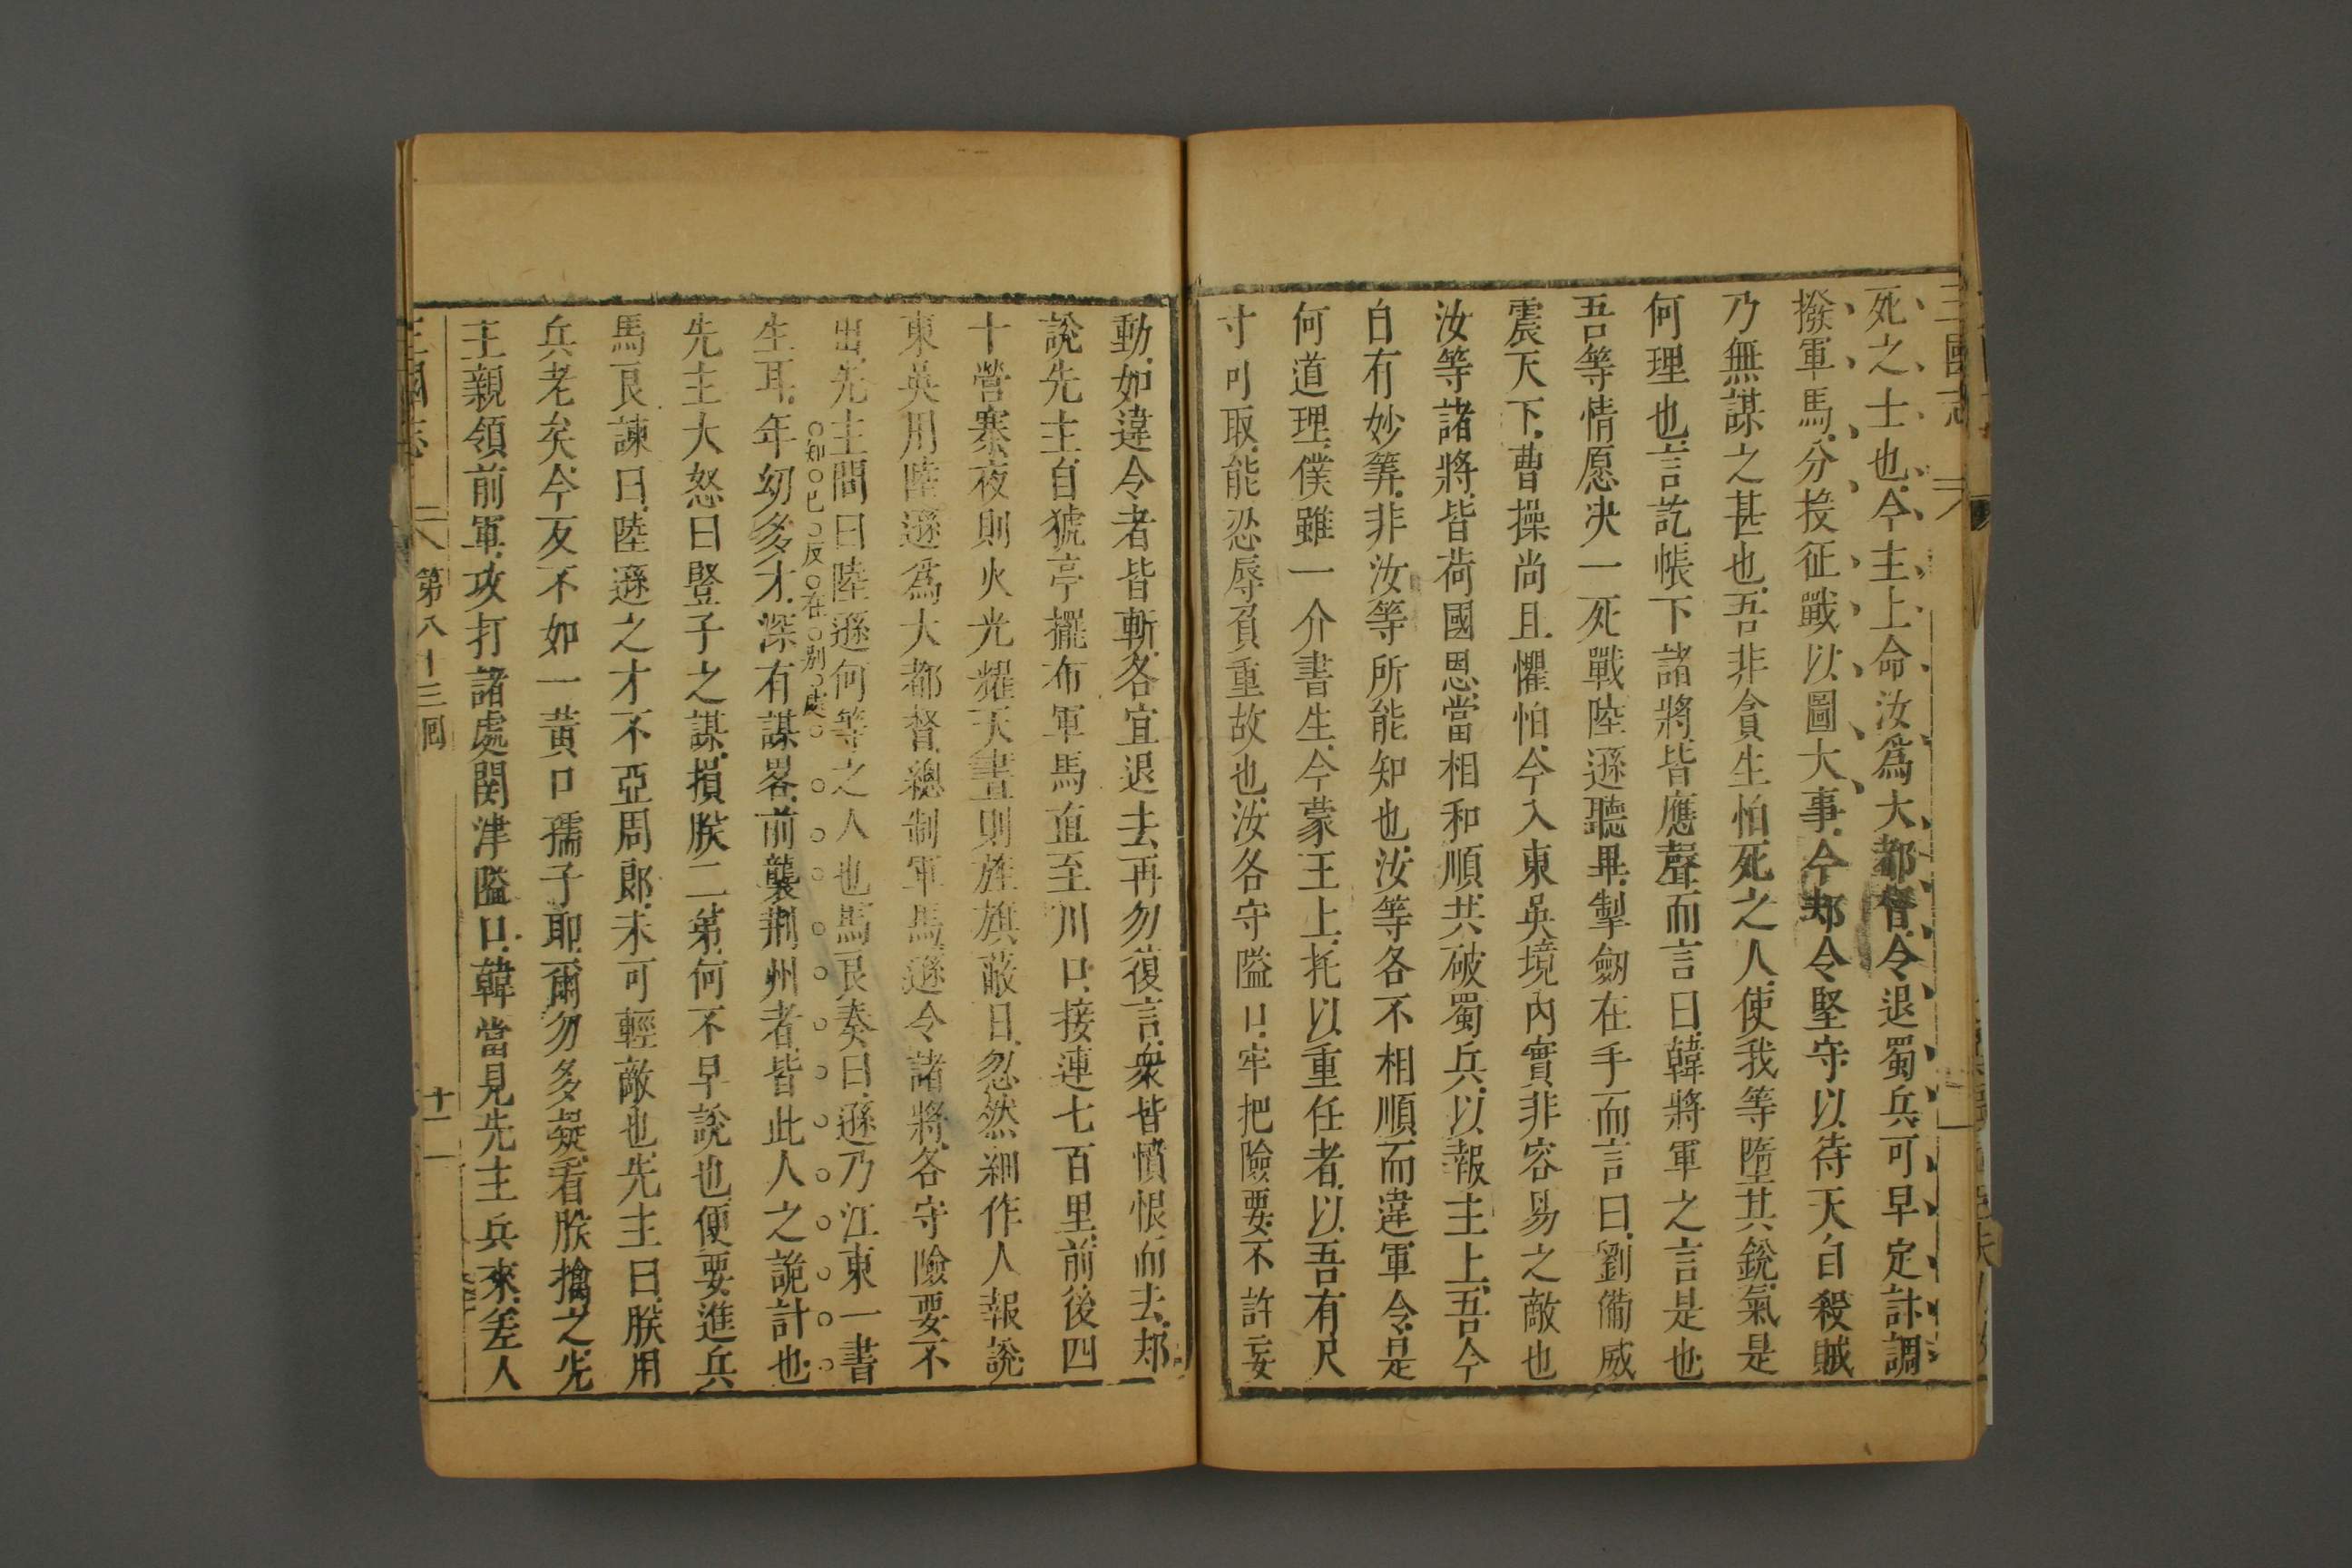 三國志
死之士也今主上命汝爲大都督令退蜀兵可早定計調
撥軍馬分投征戰以圖大事今却令堅守以待天自殺賊
乃無謀之甚也吾非貪生怕死之人使我等墮其銳氣是
何理也言訖帳下諸將皆應聲而言曰韓將軍之言是也
吾等情愿决一死戰陸遜聽畢掣劒在手而言曰劉備威
震天下曹操尚且懼怕今入東吳境內實非容易之敵也
汝等諸將皆荷國恩當相和順共破蜀兵以報主上吾今
自有妙筭非汝等所能知也汝等各不相順而違軍令是
何道理僕雖一介書生今蒙王上托以重任者以吾有尺
寸可取能忍辱負重故也汝各守隘口牢把險要不許妄
動如違令者皆斬各宜退去再勿復言衆皆憤恨而去却
說先主自猇亭擺布軍馬直至川口接連七百里前後四
十營寨夜則火光耀天晝則旌旗蔽日忽然細作人報說
東吳用陸遜爲大都督總制軍馬遜令諸將各守險要不
出先主問曰陸遜何等之人也馬良奏曰遜乃江東一書
知巳反在别處
生耳年幼多才深有謀畧前襲荆州者皆此人之詭計也
先主大怒曰豎子之謀損朕二弟何不早說也便要進兵
馬良諫曰陸遜之才不亞周郎未可輕敵也先主曰朕用
兵老矣今反不如一黃口孺子耶爾勿多疑看朕擒之先
主親領前軍攻打諸處関津隘口韓當見先主兵來差人
三國志 第八十三回 十一